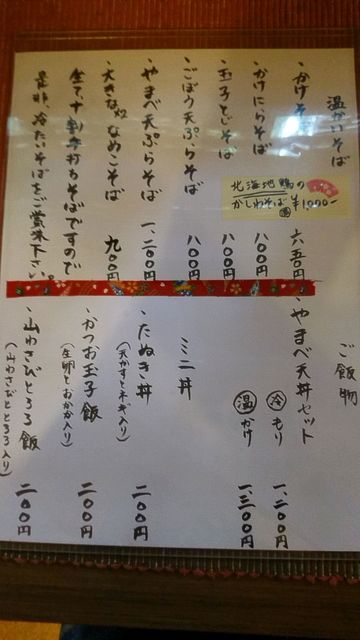 温かいそば
・かけそば 六五〇円
北海地鶏の
かしわそば 温 ¥1,000-
・かけにらそば 八〇〇円
・玉子とじそば 八〇〇円
・ごぼう天ぷらそば 八〇〇円
・やまべ天ぷらそば 一、二〇〇円
・大きななめこそば 九〇〇円
全て十割手打ちそばですので
是非、冷たいそばをご賞味下さい。
ご飯物
・やまべ天丼セット
冷 もり 一、二〇〇円
温 かけ 一、三〇〇円
ミニ丼
・たぬき丼 二〇〇円
(天かすとネギ入り)
・かつお玉子飯 二〇〇円
(生卵とおかか入り)
・山わさびとろろ飯 二〇〇円
(山わさびとトロロ入り)